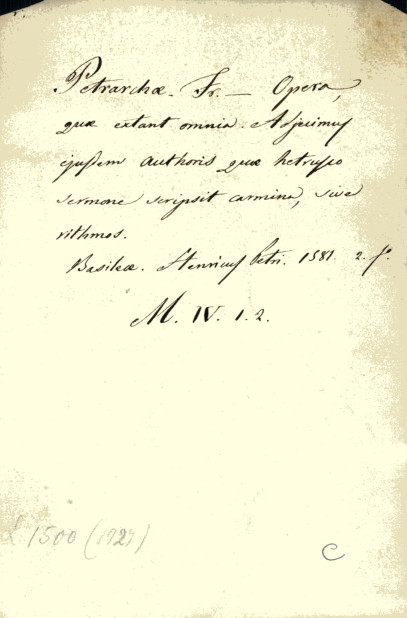 Petrarchæ. Fr. — Opera,
quæ extant omnia. Adjecimus
ejusdem authoris quæ hetrusco
sermone scripsit carmina, sive
rithmos.
Basileæ. Henricus Petri. 1581. 2. f°.
M. IV. 1. 2.
1500 (1727)
C